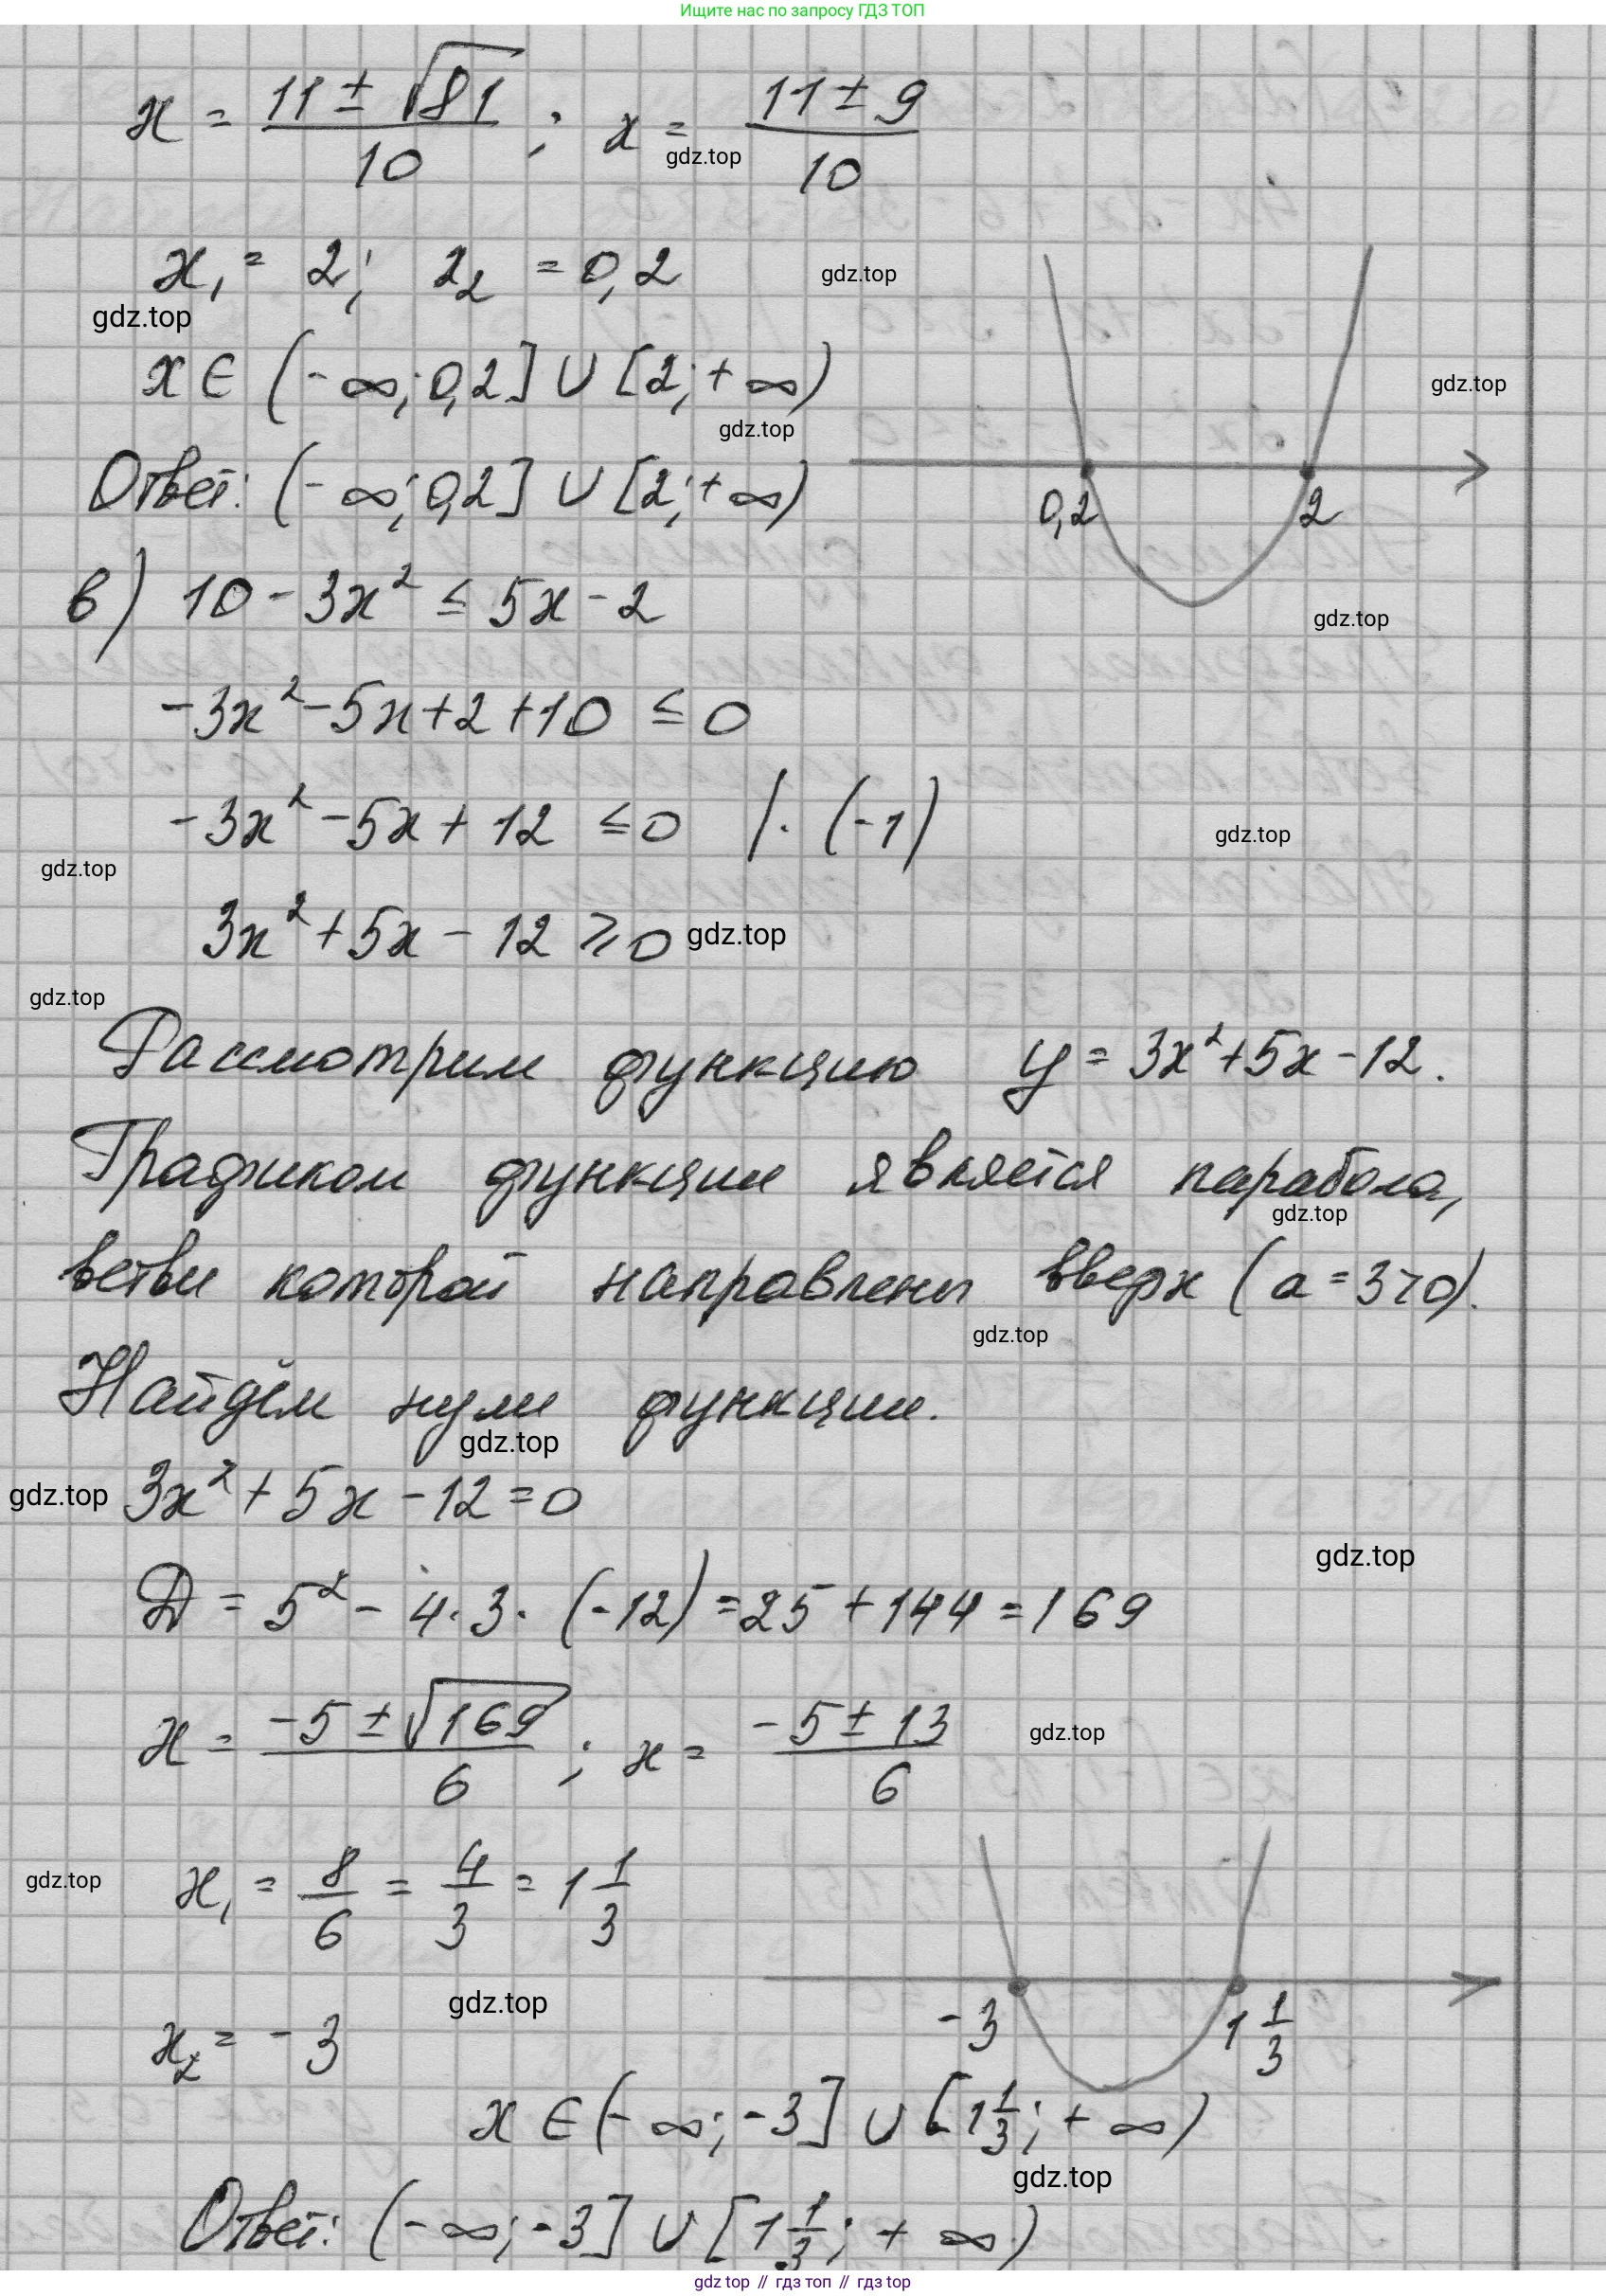 Ищите нас по запросу ГДЗ ТОП
x = (11 ± √81)/10 ; x = (11 ± 9)/10
gdz.top
x₁ = 2; x₂ = 0,2
gdz.top
gdz.top
x ∈ (-∞; 0,2] ∪ [2; +∞)
gdz.top
gdz.top
Ответ: (-∞; 0,2] ∪ [2; +∞)
0,2 2
в) 10 - 3x² ≤ 5x - 2
gdz.top
-3x² - 5x + 2 + 10 ≤ 0
-3x² - 5x + 12 ≤ 0 | · (-1)
gdz.top
gdz.top
3x² + 5x - 12 ≥ 0
gdz.top
gdz.top
Рассмотрим функцию y = 3x² + 5x - 12.
Графиком функции является парабола,
gdz.top
ветви которой направлены вверх (a = 3 > 0).
gdz.top
Найдём нули функции.
gdz.top
gdz.top
3x² + 5x - 12 = 0
gdz.top
D = 5² - 4 · 3 · (-12) = 25 + 144 = 169
x = (-5 ± √169)/6 ; x = (-5 ± 13)/6
gdz.top
gdz.top
x₁ = 8/6 = 4/3 = 1 1/3
gdz.top
x₂ = -3
-3 1 1/3
x ∈ (-∞; -3] ∪ [1 1/3; +∞)
gdz.top
Ответ: (-∞; -3] ∪ [1 1/3; +∞)
gdz top // гдз топ // гдз top